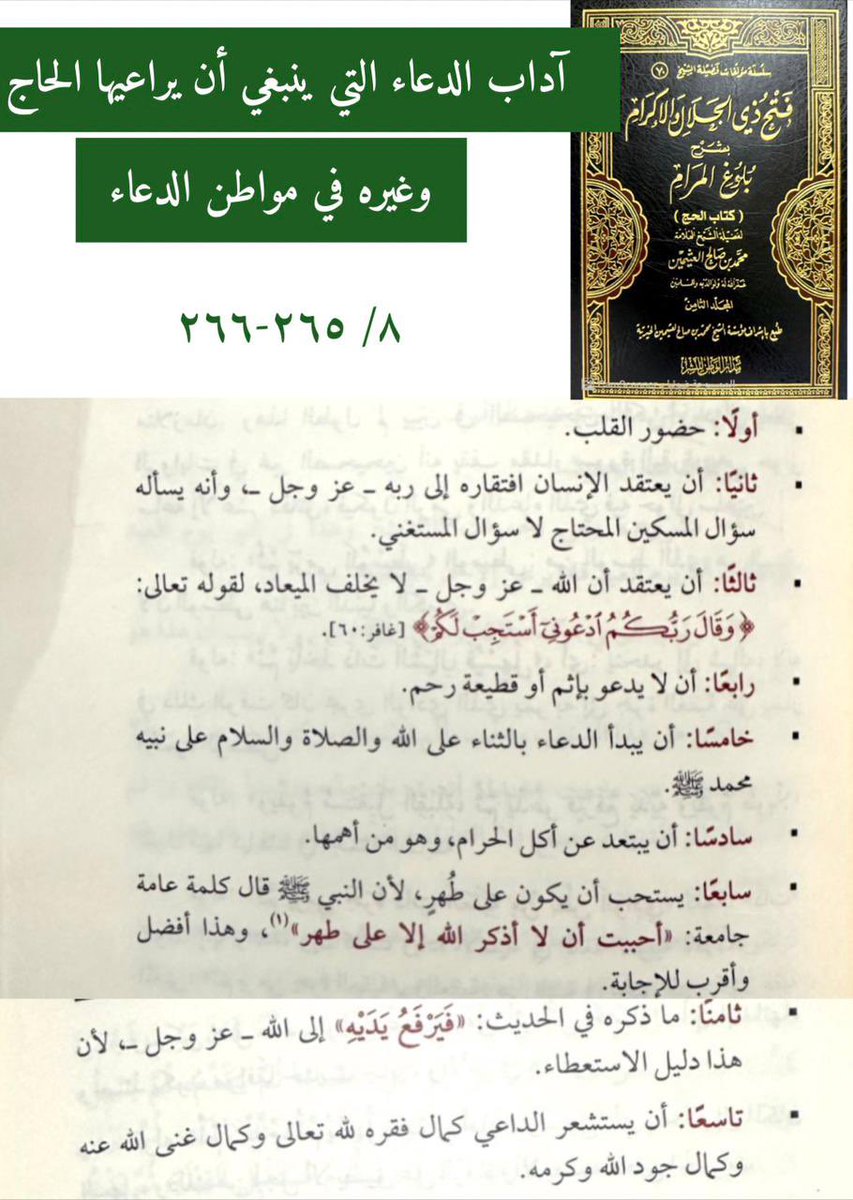 آداب الدعاء التي ينبغي أن يراعيها الحاج
وغيره في مواطن الدعاء
٨/ ٢٦٥-٢٦٦
سلسلة مؤلفات فضيلة الشيخ (٧٠)
فتح ذي الجلال والإكرام
بشرح
بلوغ المرام
(كتاب الحج)
لفضيلة الشيخ العلامة
محمد بن صالح العثيمين
غفر الله له ولوالديه وللمسلمين
المجلد الثامن
طبع بإشراف مؤسسة الشيخ محمد بن صالح العثيمين الخيرية
مدار الوطن للنشر
▪ أولًا: حضور القلب.
▪ ثانيًا: أن يعتقد الإنسان افتقاره إلى ربه ـ عز وجل ـ، وأنه يسأله
سؤال المسكين المحتاج لا سؤال المستغني.
▪ ثالثًا: أن يعتقد أن الله ـ عز وجل ـ لا يخلف الميعاد، لقوله تعالى:
﴿وَقَالَ رَبُّكُمُ ادْعُونِيٓ أَسْتَجِبْ لَكُمْ﴾ [غافر:٦٠].
▪ رابعًا: أن لا يدعو بإثم أو قطيعة رحم.
▪ خامسًا: أن يبدأ الدعاء بالثناء على الله والصلاة والسلام على نبيه
محمد ﷺ.
▪ سادسًا: أن يبتعد عن أكل الحرام، وهو من أهمها.
▪ سابعًا: يستحب أن يكون على طُهرٍ، لأن النبي ﷺ قال كلمة عامة
جامعة: «أحببت أن لا أذكر الله إلا على طهر»(١)، وهذا أفضل
وأقرب للإجابة.
▪ ثامنًا: ما ذكره في الحديث: «فَيَرْفَعُ يَدَيْهِ» إلى الله ـ عز وجل ـ، لأن
هذا دليل الاستعطاء.
▪ تاسعًا: أن يستشعر الداعي كمال فقره لله تعالى وكمال غنى الله عنه
وكمال جود الله وكرمه.